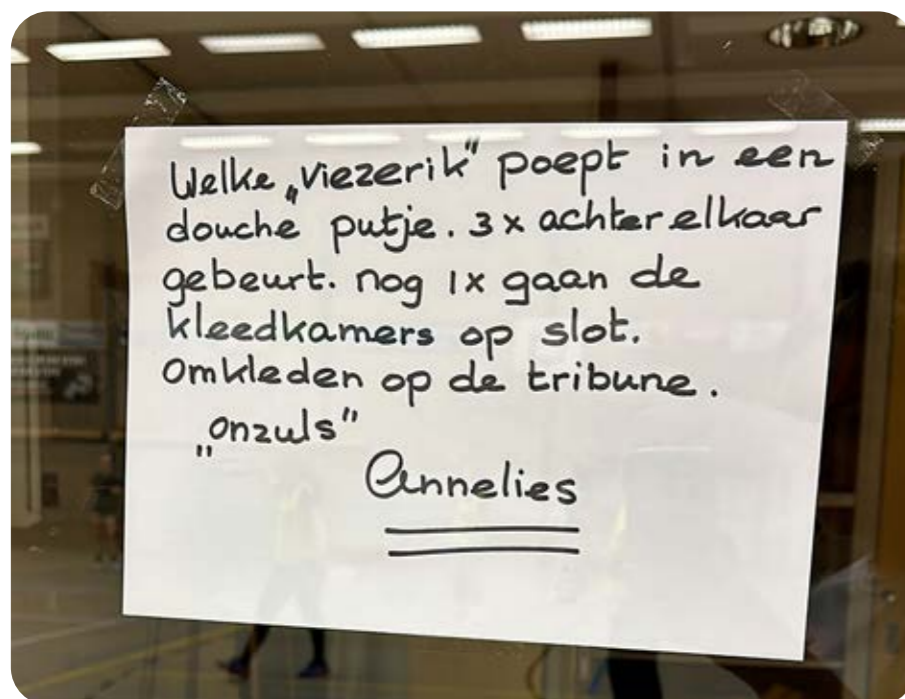 Welke „viezerik" poept in een
douche putje. 3x achter elkaar
gebeurt. nog 1x gaan de
kleedkamers op slot.
Omkleden op de tribune.
„onzuls"
Annelies